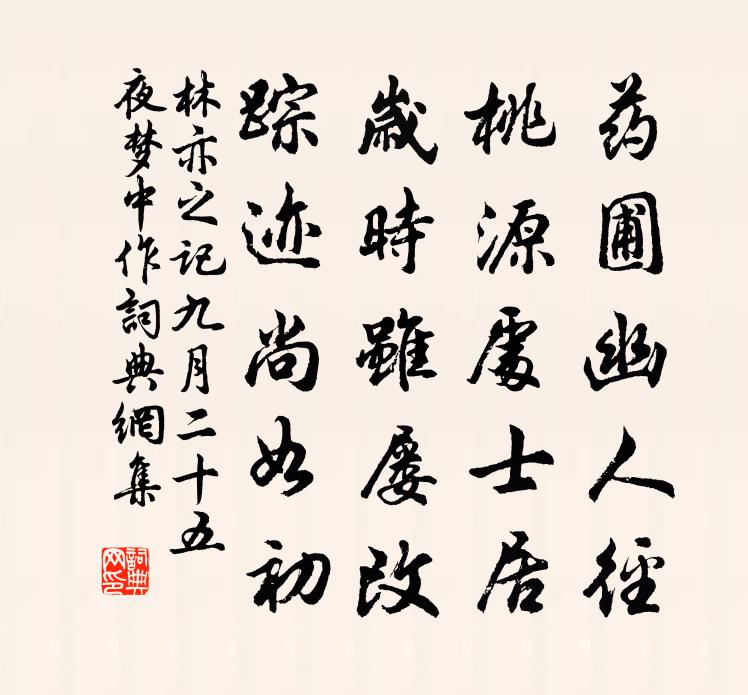 药圃幽人径
桃源處士居
歲時雖屡改
踪迹尚如初
林亦之記九月二十五
夜梦中作詞典網集
詞典网印